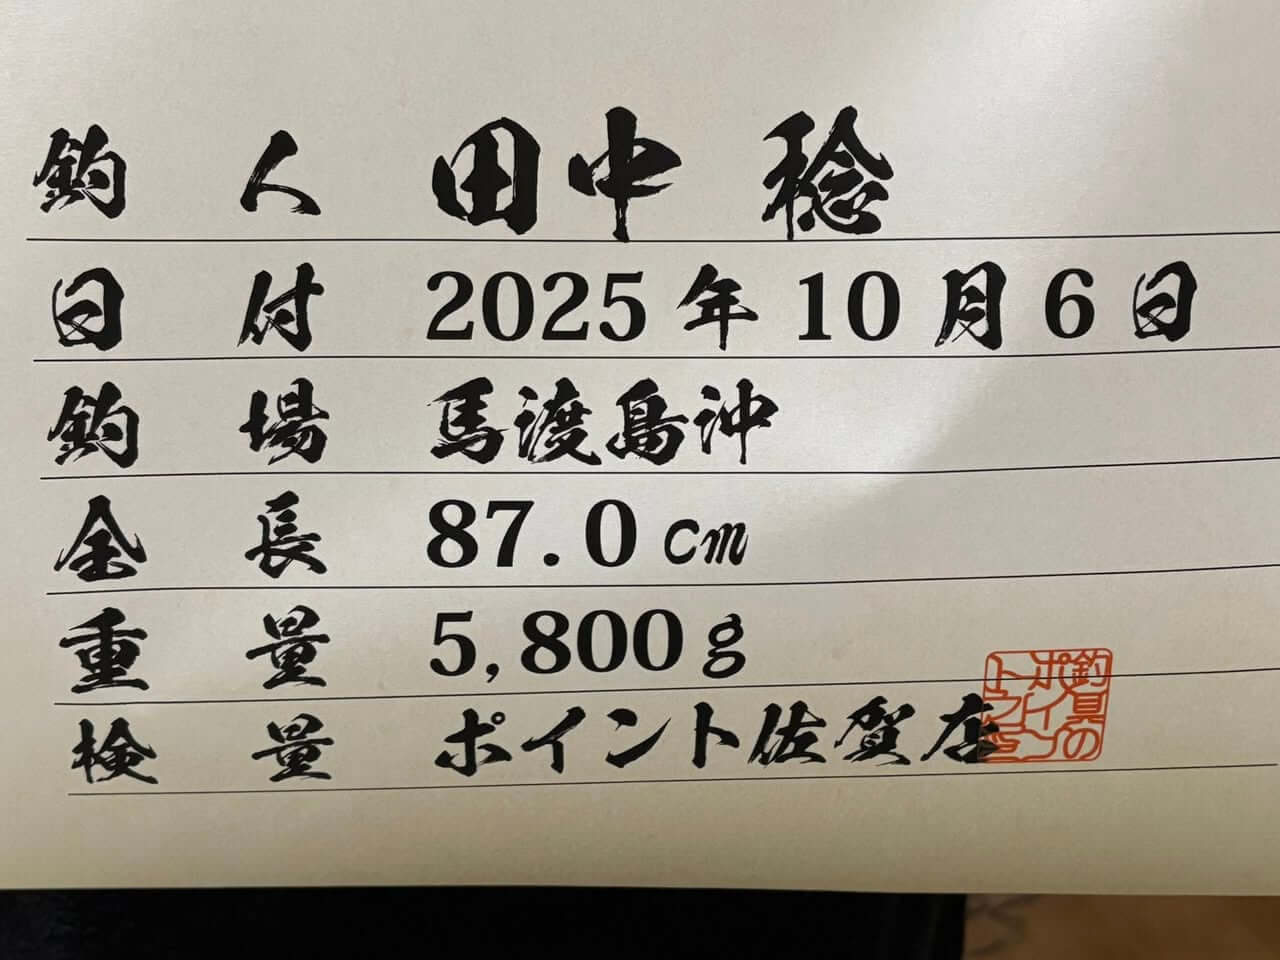 釣人 田中 稔
日付 2025年10月6日
釣場 馬渡島沖
全長 87.0cm
重量 5,800g
検量 ポイント佐賀店
釣具の
ポイント